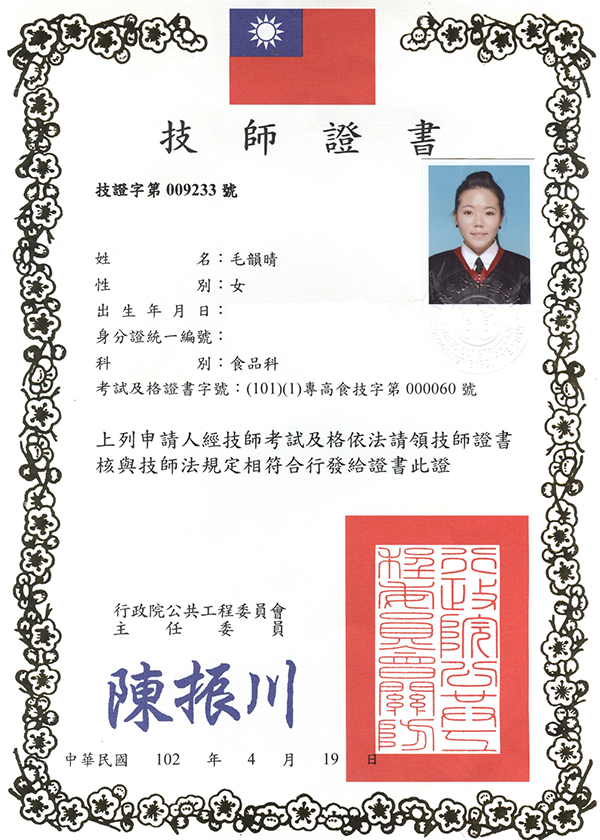 技師證書
技證字第 009233 號
姓名：毛韻晴
性別：女
出生年月日：
身分證統一編號：
科別：食品科
考試及格證書字號：(101)(1)專高食技字第 000060 號
上列申請人經技師考試及格依法請領技師證書
核與技師法規定相符合行發給證書此證
行政院公共工程委員會
主任委員
陳振川
行政院公共工程委員會關防
中華民國 102 年 4 月 19 日